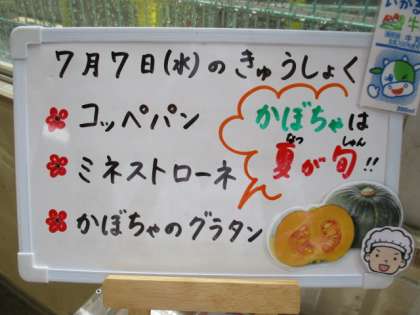 7月7日(水)のきゅうしょく
コッペパン
ミネストローネ
かぼちゃのグラタン
かぼちゃは
夏が旬!!
なつ しゅん